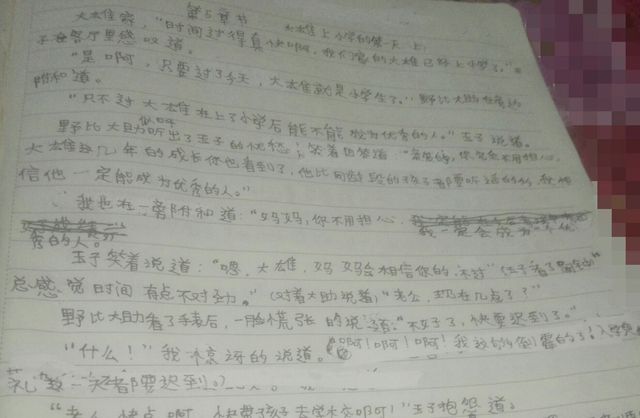 第5章节
大雄上小学的第一天 上
大雄家,"时间过得真快啊,我们家的大雄已经上小学了。"
子在客厅里感叹道。
"是啊,只要过了今天,大雄就是小学生了。"野比大助
附和道。
"只不过大雄在上了小学后能不能成为优秀的人。"玉子说道。
野比大助听出了玉子的忧愁;笑着回答道:"你不用担心,
大雄这几年的成长你也看到了,他比同龄段的孩子都要听话的多,我相
信他一定能成为优秀的人。"
我也在一旁附和道:"妈妈,你不用担心,我一定会成为一个优
秀的人。
玉子笑着说道:"嗯,大雄,妈妈会相信你的,不过"(玉子看了
总感觉时间有点不对劲。"(对着大助说着)"老公,现在几点了?"
野比大助看了手表后,一脸慌张的说道:"不好了,快要迟到了。"
"什么!"我惊讶的说道。(啊!啊!啊!我这么倒霉的了!入学典
礼第一天都要迟到。)
"老公,快点啊,快带孩子去学校啊!"玉子抱怨道。